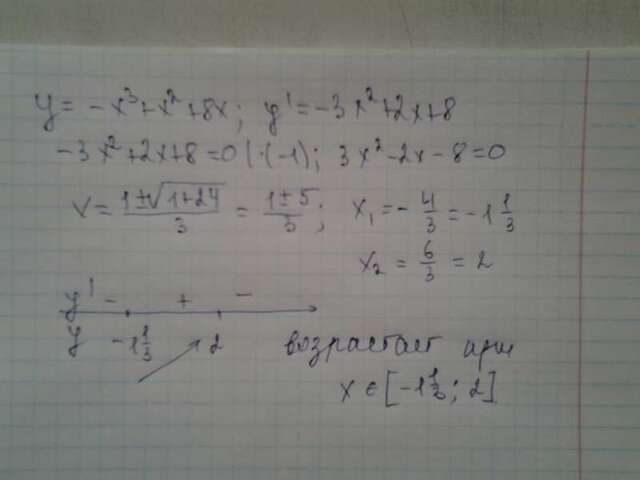 y = -x³+x²+8x; y' = -3x²+2x+8
-3x²+2x+8=0 (·(-1)); 3x²-2x-8=0
x = (1±√(1+24))/3 = (1±5)/3; x₁ = -4/3 = -1 1/3
x₂ = 6/3 = 2
y' - + -
y -1 1/3 2 возрастает при
x ∈ [-1 1/3; 2]